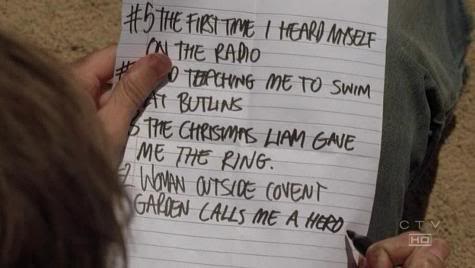 #5 THE FIRST TIME I HEARD MYSELF
ON THE RADIO
# TEACHING ME TO SWIM
AT BUTLINS
3 THE CHRISTMAS LIAM GAVE
ME THE RING.
2 WOMAN OUTSIDE COVENT
GARDEN CALLS ME A HERO
CTV
HD